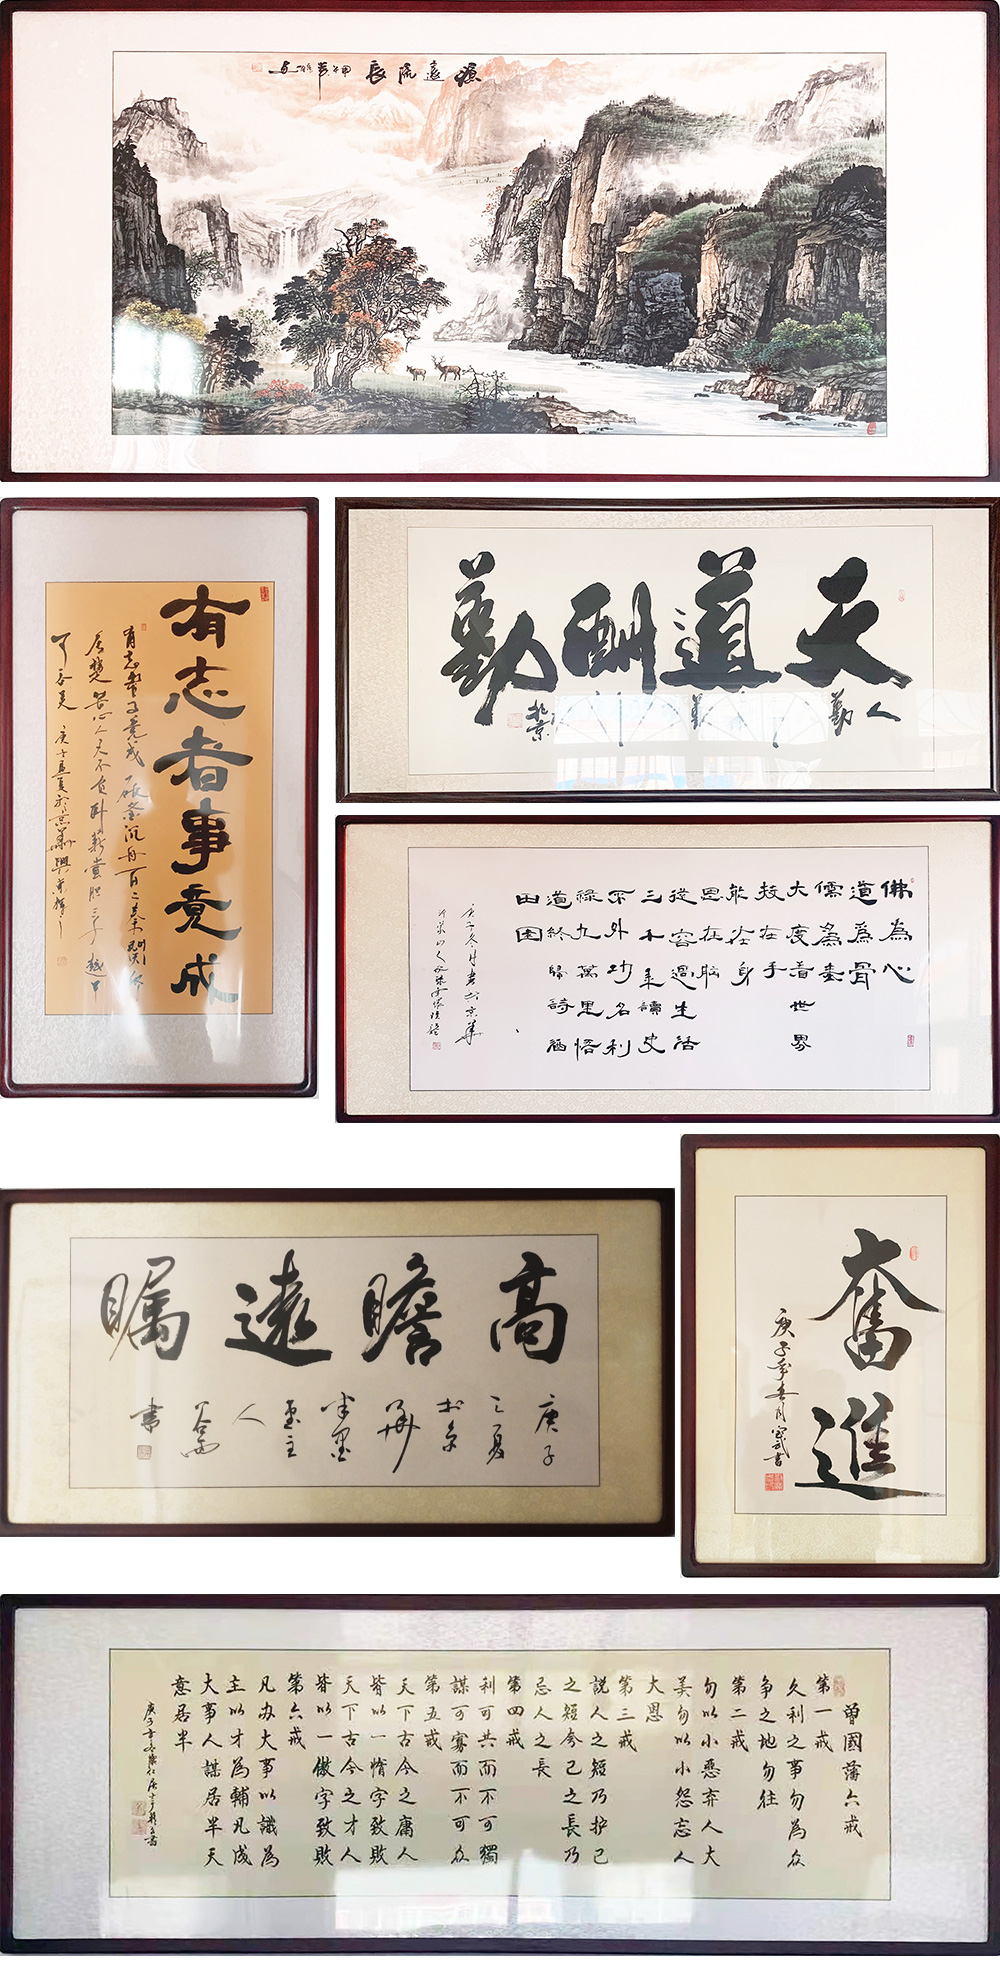 源遠流長
有志者事竟成
有志者事竟成 破釜沉舟 百二秦關
屬楚 苦心人天不負 臥薪嘗胆 三千越甲
可吞吴
天道酬勤
人
勤
北京
佛為心
道為骨
儒為表
大度看世界
技在手
能在身
思在腦
從容過生活
三千年讀史
不外功名利
祿九萬里悟
道終歸詩酒
田園
庚子冬月書於京華
高瞻遠矚
庚子
之夏
於京
華
半墨
齋主
人
書
奮進
庚子年
月
書
曾國藩六戒
第一戒
久利之事勿為众
争之地勿往
第二戒
勿以小恶弃人大
美勿以小怨忘人
大恩
第三戒
説人之短乃护己
之短夸己之長乃
忌人之長
第四戒
利可共而不可獨
謀可寡而不可众
第五戒
天下古今之庸人
皆以一惰字致敗
天下古今之才人
皆以一傲字致敗
第六戒
凡办大事以識為
主以才為輔凡成
大事人謀居半天
意居半